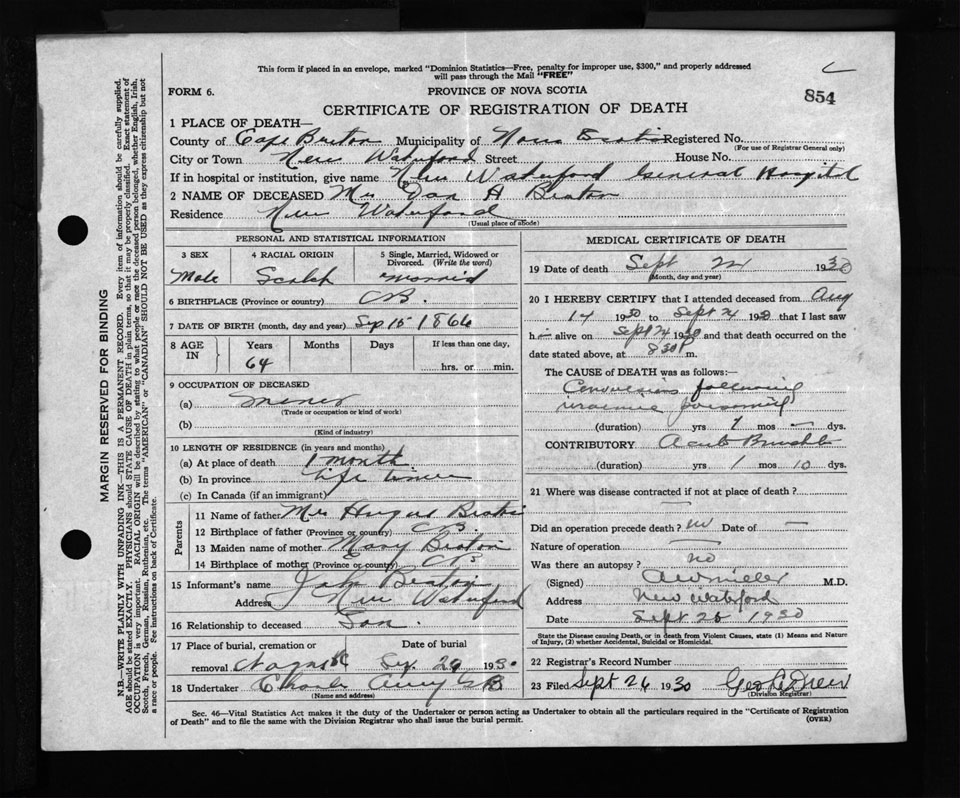 This form if placed in an envelope, marked "Dominion Statistics—Free, penalty for improper use, $300," and properly addressed
will pass through the Mail "FREE"
FORM 6.
PROVINCE OF NOVA SCOTIA
854
CERTIFICATE OF REGISTRATION OF DEATH
1 PLACE OF DEATH—
County of Cape Breton Municipality of Nova Scotia Registered No.
(For use of Registrar General only)
City or Town New Waterford Street House No.
If in hospital or institution, give name New Waterford General Hospital
2 NAME OF DECEASED Mr Dan A Beaton
Residence New Waterford
(Usual place of abode)
PERSONAL AND STATISTICAL INFORMATION
3 SEX
Male
4 RACIAL ORIGIN
Scotch
5 Single, Married, Widowed or
Divorced. (Write the word)
Married
6 BIRTHPLACE (Province or country) CB.
7 DATE OF BIRTH (month, day and year) Sep 15 1866
8 AGE
IN
Years Months Days If less than one day,
64 hrs. or min.
9 OCCUPATION OF DECEASED
(a) Miner
(Trade or occupation or kind of work)
(b)
(Kind of industry)
10 LENGTH OF RESIDENCE (in years and months)
(a) At place of death 1 month
(b) In province Life time
(c) In Canada (if an immigrant)
Parents
11 Name of father Angus Beaton
12 Birthplace of father (Province or country) CB
13 Maiden name of mother Mary Beaton
14 Birthplace of mother (Province or country) CB
15 Informant's name Beaton
Address New Waterford
16 Relationship to deceased Son.
17 Place of burial, cremation or
removal
Date of burial
1930
18 Undertaker Charles
(Name and address)
MEDICAL CERTIFICATE OF DEATH
19 Date of death Sept 1930
(Month, day and year)
20 I HEREBY CERTIFY that I attended deceased from Aug
14 1930 to Sept 24 1930 that I last saw
h— alive on Sept 24 1930 and that death occurred on the
date stated above, at 8 30 P m.
The CAUSE of DEATH was as follows:—
Convulsions following
uraemic poisoning
(duration) yrs 1 mos — dys.
CONTRIBUTORY Acute
(duration) yrs 1 mos 10 dys.
21 Where was disease contracted if not at place of death?
Did an operation precede death? no Date of —
Nature of operation —
Was there an autopsy? no
(Signed) M.D.
Address New Waterford
Date Sept 26 1930
State the Disease causing Death, or in death from Violent Causes, state (1) Means and Nature
of Injury, (2) whether Accidental, Suicidal or Homicidal.
22 Registrar's Record Number
23 Filed Sept 26 1930
(Division Registrar)
Sec. 46—Vital Statistics Act makes it the duty of the Undertaker or person acting as Undertaker to obtain all the particulars required in the "Certificate of Registration
of Death" and to file the same with the Division Registrar who shall issue the burial permit.
(OVER)
MARGIN RESERVED FOR BINDING
N.B.—WRITE PLAINLY WITH UNFADING INK—THIS IS A PERMANENT RECORD. Every item of information should be carefully supplied.
AGE should be stated EXACTLY. PHYSICIANS should STATE CAUSE OF DEATH in plain terms, so that it may be properly classified. Exact statement of
OCCUPATION is very important. RACIAL ORIGIN will be described by stating to what people or race the deceased person belonged, whether English, Irish,
Scotch, French, German, Russian, Ruthenian, etc. The terms "AMERICAN" or "CANADIAN" SHOULD NOT BE USED as they express citizenship but not
a race or people. See instructions on back of Certificate.